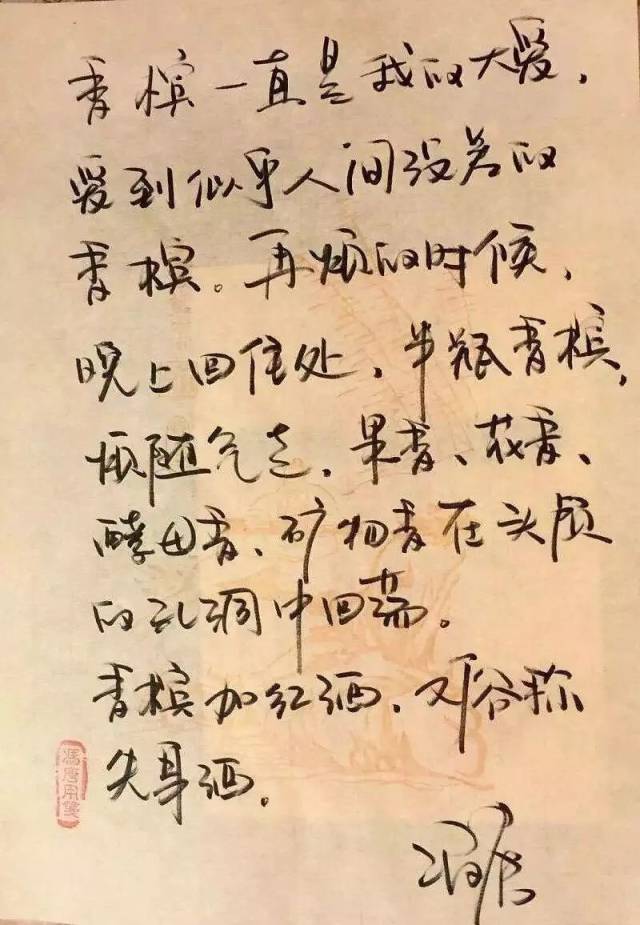 香槟一直是我的大爱，
爱到似乎人间没有的
香槟。再烦的时候，
晚上回住处，半瓶香槟，
烦随气走，果香、花香、
酵母香、矿物香在头颅
的孔洞中回荡。
香槟加红酒，又俗称
失身酒。
冯唐
冯唐用笺